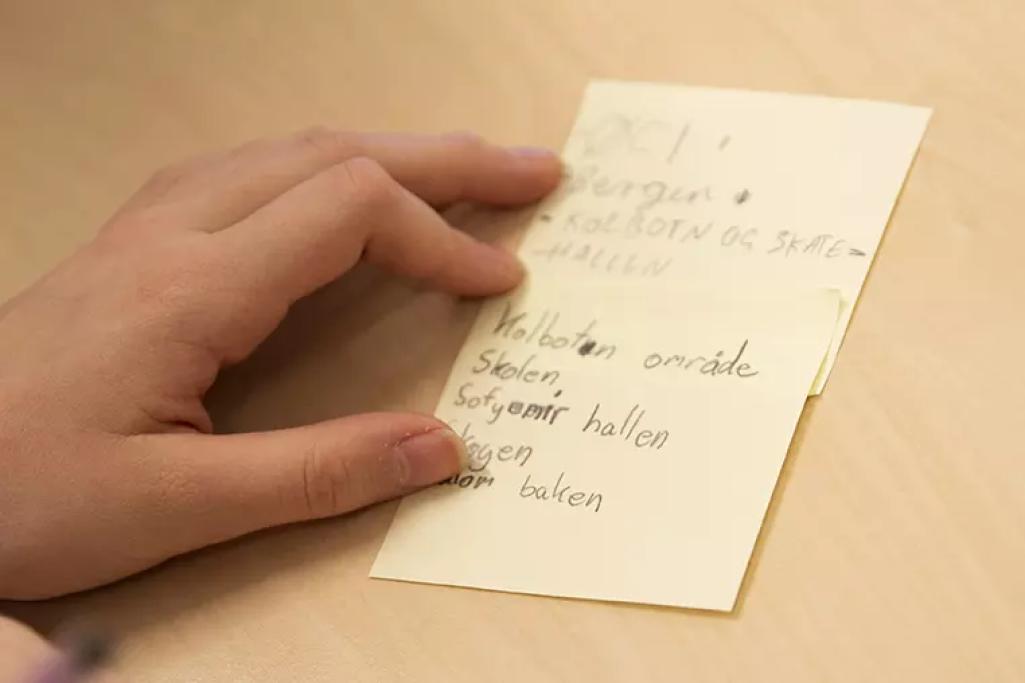 Bergen
- KOLBOTN OG SKATE=
-HALLEN
Kolboten område
Skolen,
hallen
skogen
baken